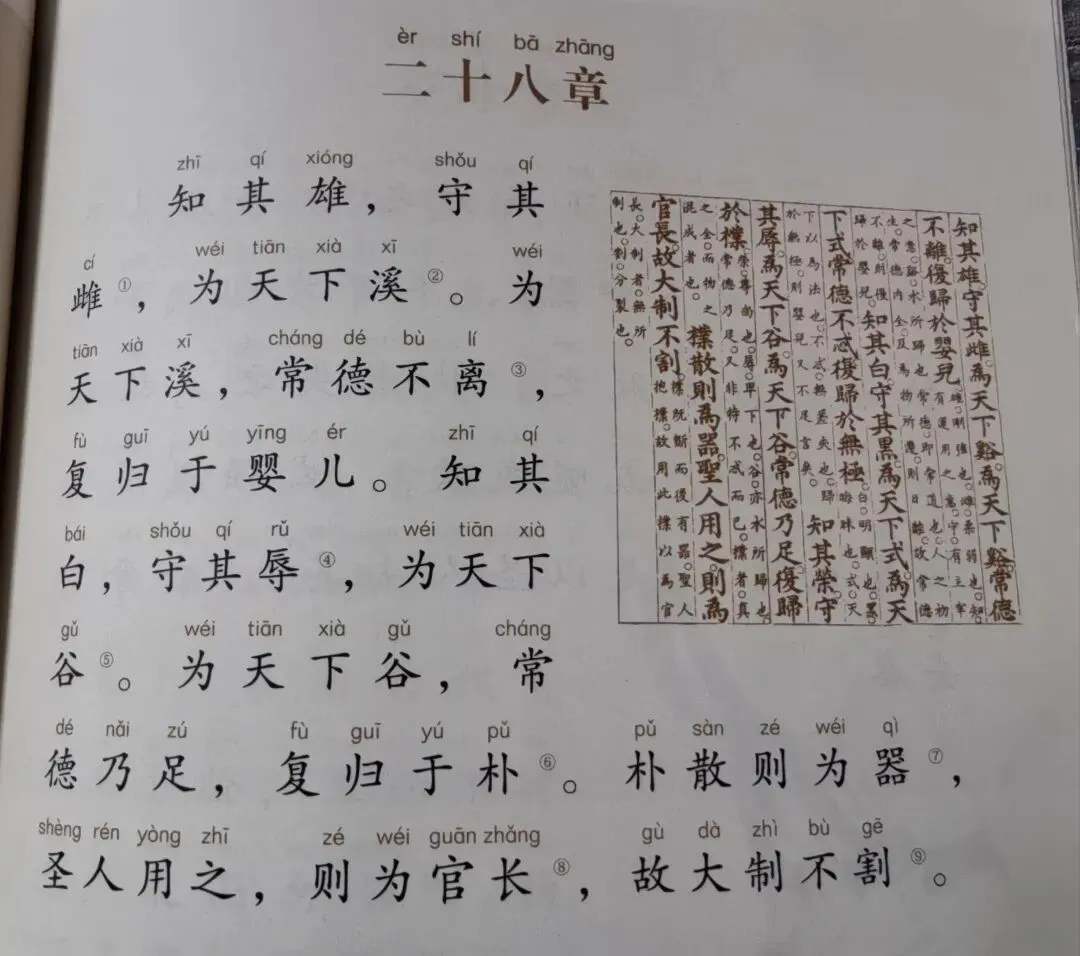 èr shí bā zhāng
二十八章
zhī qí xióng shǒu qí
知其雄，守其
cí wéi tiān xià xī wéi
雌①，为天下溪②。为
tiān xià xī cháng dé bù lí
天下溪，常德不离③，
fù guī yú yīng ér zhī qí
复归于婴儿。知其
bái shǒu qí rǔ wéi tiān xià
白，守其辱④，为天下
gǔ wéi tiān xià gǔ cháng
谷⑤。为天下谷，常
dé nǎi zú fù guī yú pǔ pǔ sàn zé wéi qì
德乃足，复归于朴⑥。朴散则为器⑦，
shèng rén yòng zhī zé wéi guān zhǎng gù dà zhì bù gē
圣人用之，则为官长⑧，故大制不割⑨。
知其雄。守其雌。為天下谿。為天下谿。常德
不離。復歸於嬰兒。
知其白。守其黑。為天下式。為天
下式。常德不忒。復歸於無極。
知其榮。守
其辱。為天下谷。為天下谷。常德乃足。復歸
於樸。
樸散則為器。聖人用之。則為
官長。故大制不割。